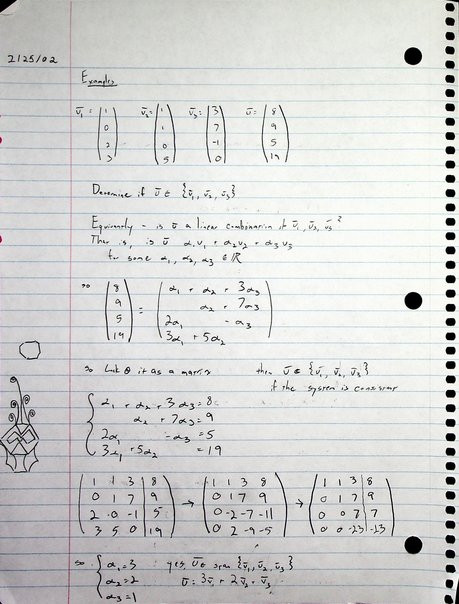 2/25/02
Examples
v̄₁ = (1 0 2 3) v̄₂ = (1 1 0 5) v̄₃ = (3 7 -1 0) ū = (8 9 5 19)
Determine if ū ∈ {v̄₁, v̄₂, v̄₃}
Equivalently - is ū a linear combination of v̄₁, v̄₂, v̄₃?
That is, is ū α₁v₁ + α₂v₂ + α₃v₃
for some α₁, α₂, α₃ ∈ ℝ
so (8 9 5 19) = (α₁ + α₂ + 3α₃
α₂ + 7α₃
2α₁ - α₃
3α₁ + 5α₂)
so Look @ it as a matrix then ū ∈ {v̄₁, v̄₂, v̄₃}
if the system is consistent
{ α₁ + α₂ + 3α₃ = 8
α₂ + 7α₃ = 9
2α₁ - α₃ = 5
3α₁ + 5α₂ = 19
(1 1 3 | 8) (1 1 3 8) (1 1 3 | 8)
(0 1 7 | 9) → (0 1 7 9) → (0 1 7 | 9)
(2 0 -1 | 5) (0 -2 -7 -11) (0 0 7 | 7)
(3 5 0 | 19) (0 2 -9 -5) (0 0 -23 | -23)
so { α₁ = 3 yes, ū ∈ span {v̄₁, v̄₂, v̄₃}
α₂ = 2 ū = 3v̄₁ + 2v̄₂ + v̄₃
α₃ = 1